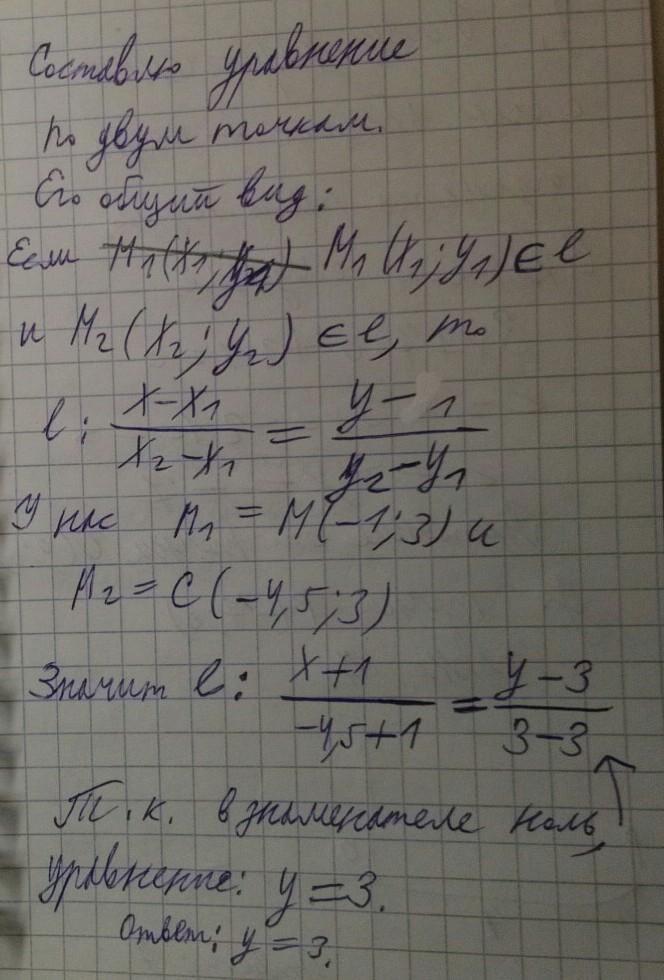 Составлю уравнение
по двум точкам.
Его общий вид:
Если M₁(x₁; y₁) M₁(x₁; y₁) ∈ l
и M₂(x₂; y₂) ∈ l, то
l: (x-x₁)/(x₂-x₁) = (y-1)/(y₂-y₁)
У нас M₁ = M(-1; 3) и
M₂ = C(-4,5; 3)
Значит l: (x+1)/(-4,5+1) = (y-3)/(3-3)
Т.к. в знаменателе ноль,
уравнение: y=3.
Ответ: y=3.